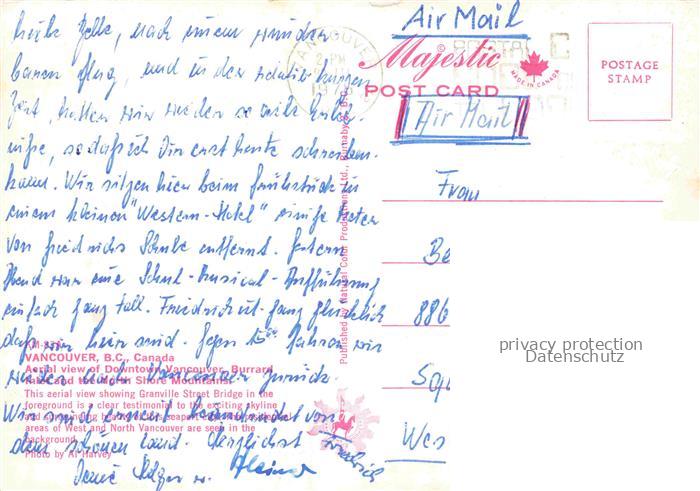 Air Mail
VANCOUVER
Majestic
POST CARD
MADE IN CANADA
POSTAGE
STAMP
Air Mail
Frau
Be
886
Wes
privacy protection
Datenschutz
Published by Natural Color Productions Ltd., Burnaby 2, B.C.
nach einem wunder
baren Flug, und in der relativ kurzen
Zeit, hatten wir wieder so viele Erleb-
nisse, sodaß ich Dir erst heute schreiben
kann. Wir sitzen hier beim Frühstück in
einem kleinen "Western-Hotel" einige Meter
von Friedrichs Schule entfernt. Gestern
Abend war eine Schul-Musical-Aufführung
einfach ganz toll. Friedrich ist ganz glücklich
daß wir hier sind. Gegen 15 fahren wir
wieder nach Vancouver zurück.
VANCOUVER, B.C., Canada
Aerial view of Downtown Vancouver, Burrard
Inlet and the North Shore Mountains.
This aerial view showing Granville Street Bridge in the
foreground is a clear testimonial to the exciting skyline
areas of West and North Vancouver are seen in the
background.
Photo by Al Harvey
Wir sind erneut beeindruckt von
dem schönen Land. Herzlichst
Friedrich